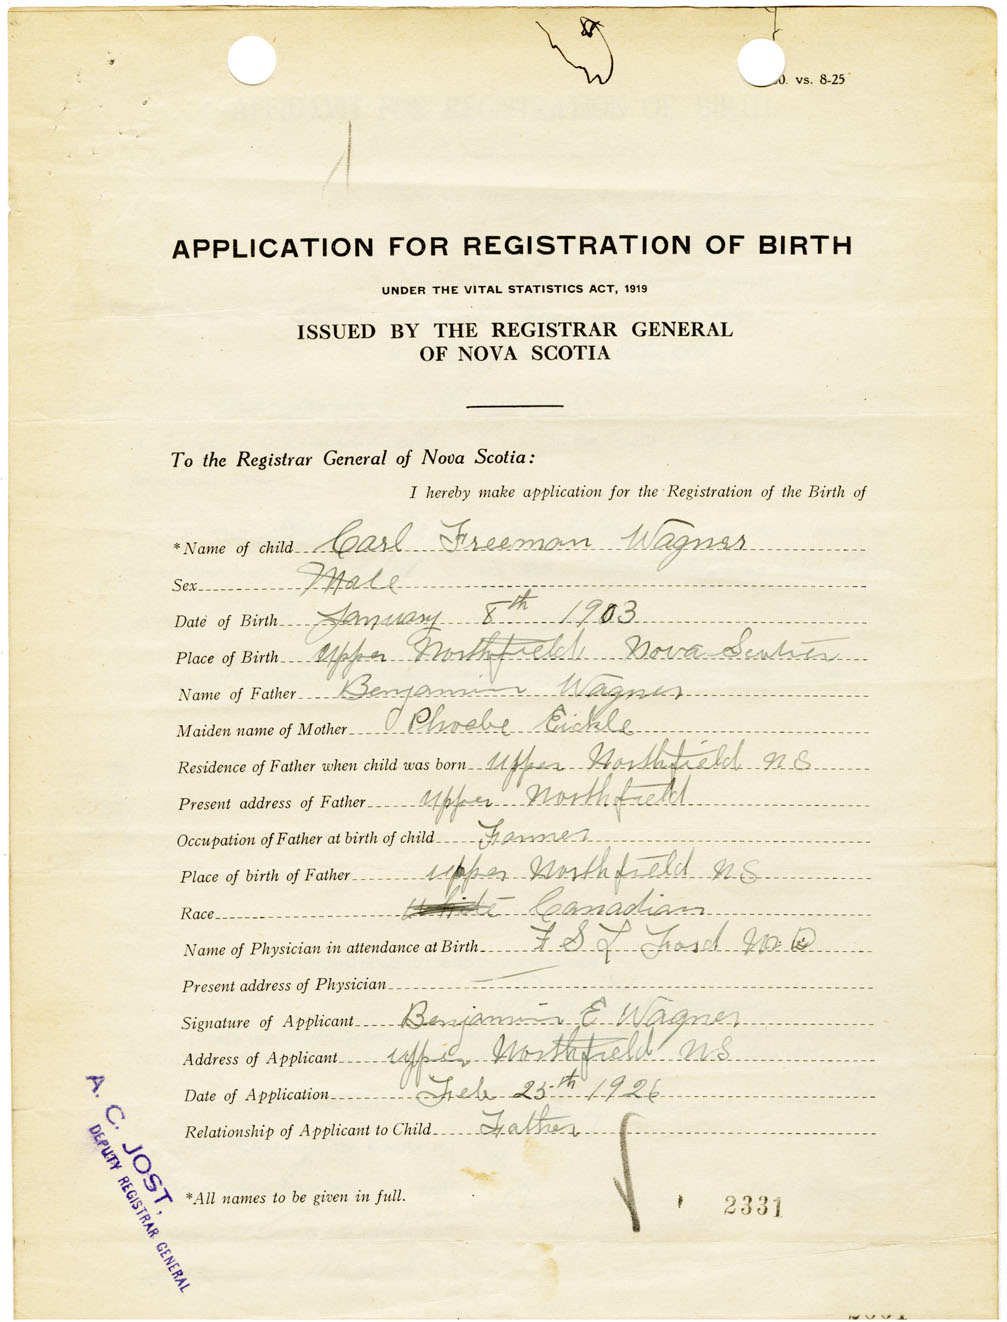 0. vs. 8-25
APPLICATION FOR REGISTRATION OF BIRTH
UNDER THE VITAL STATISTICS ACT, 1919
ISSUED BY THE REGISTRAR GENERAL
OF NOVA SCOTIA
To the Registrar General of Nova Scotia:
I hereby make application for the Registration of the Birth of
*Name of child Carl Freeman Wagner
Sex Male
Date of Birth January 8th 1903
Place of Birth Upper Northfield Nova Scotia
Name of Father Benjamin Wagner
Maiden name of Mother Phoebe Eickle
Residence of Father when child was born Upper Northfield NS
Present address of Father Upper Northfield
Occupation of Father at birth of child Farmer
Place of birth of Father Upper Northfield NS
Race White Canadian
Name of Physician in attendance at Birth F S L Ford M.D
Present address of Physician
Signature of Applicant Benjamin E Wagner
Address of Applicant Upper Northfield NS
Date of Application Feb 25th 1926
Relationship of Applicant to Child Father
*All names to be given in full.
2331
A. C. JOST,
DEPUTY REGISTRAR GENERAL